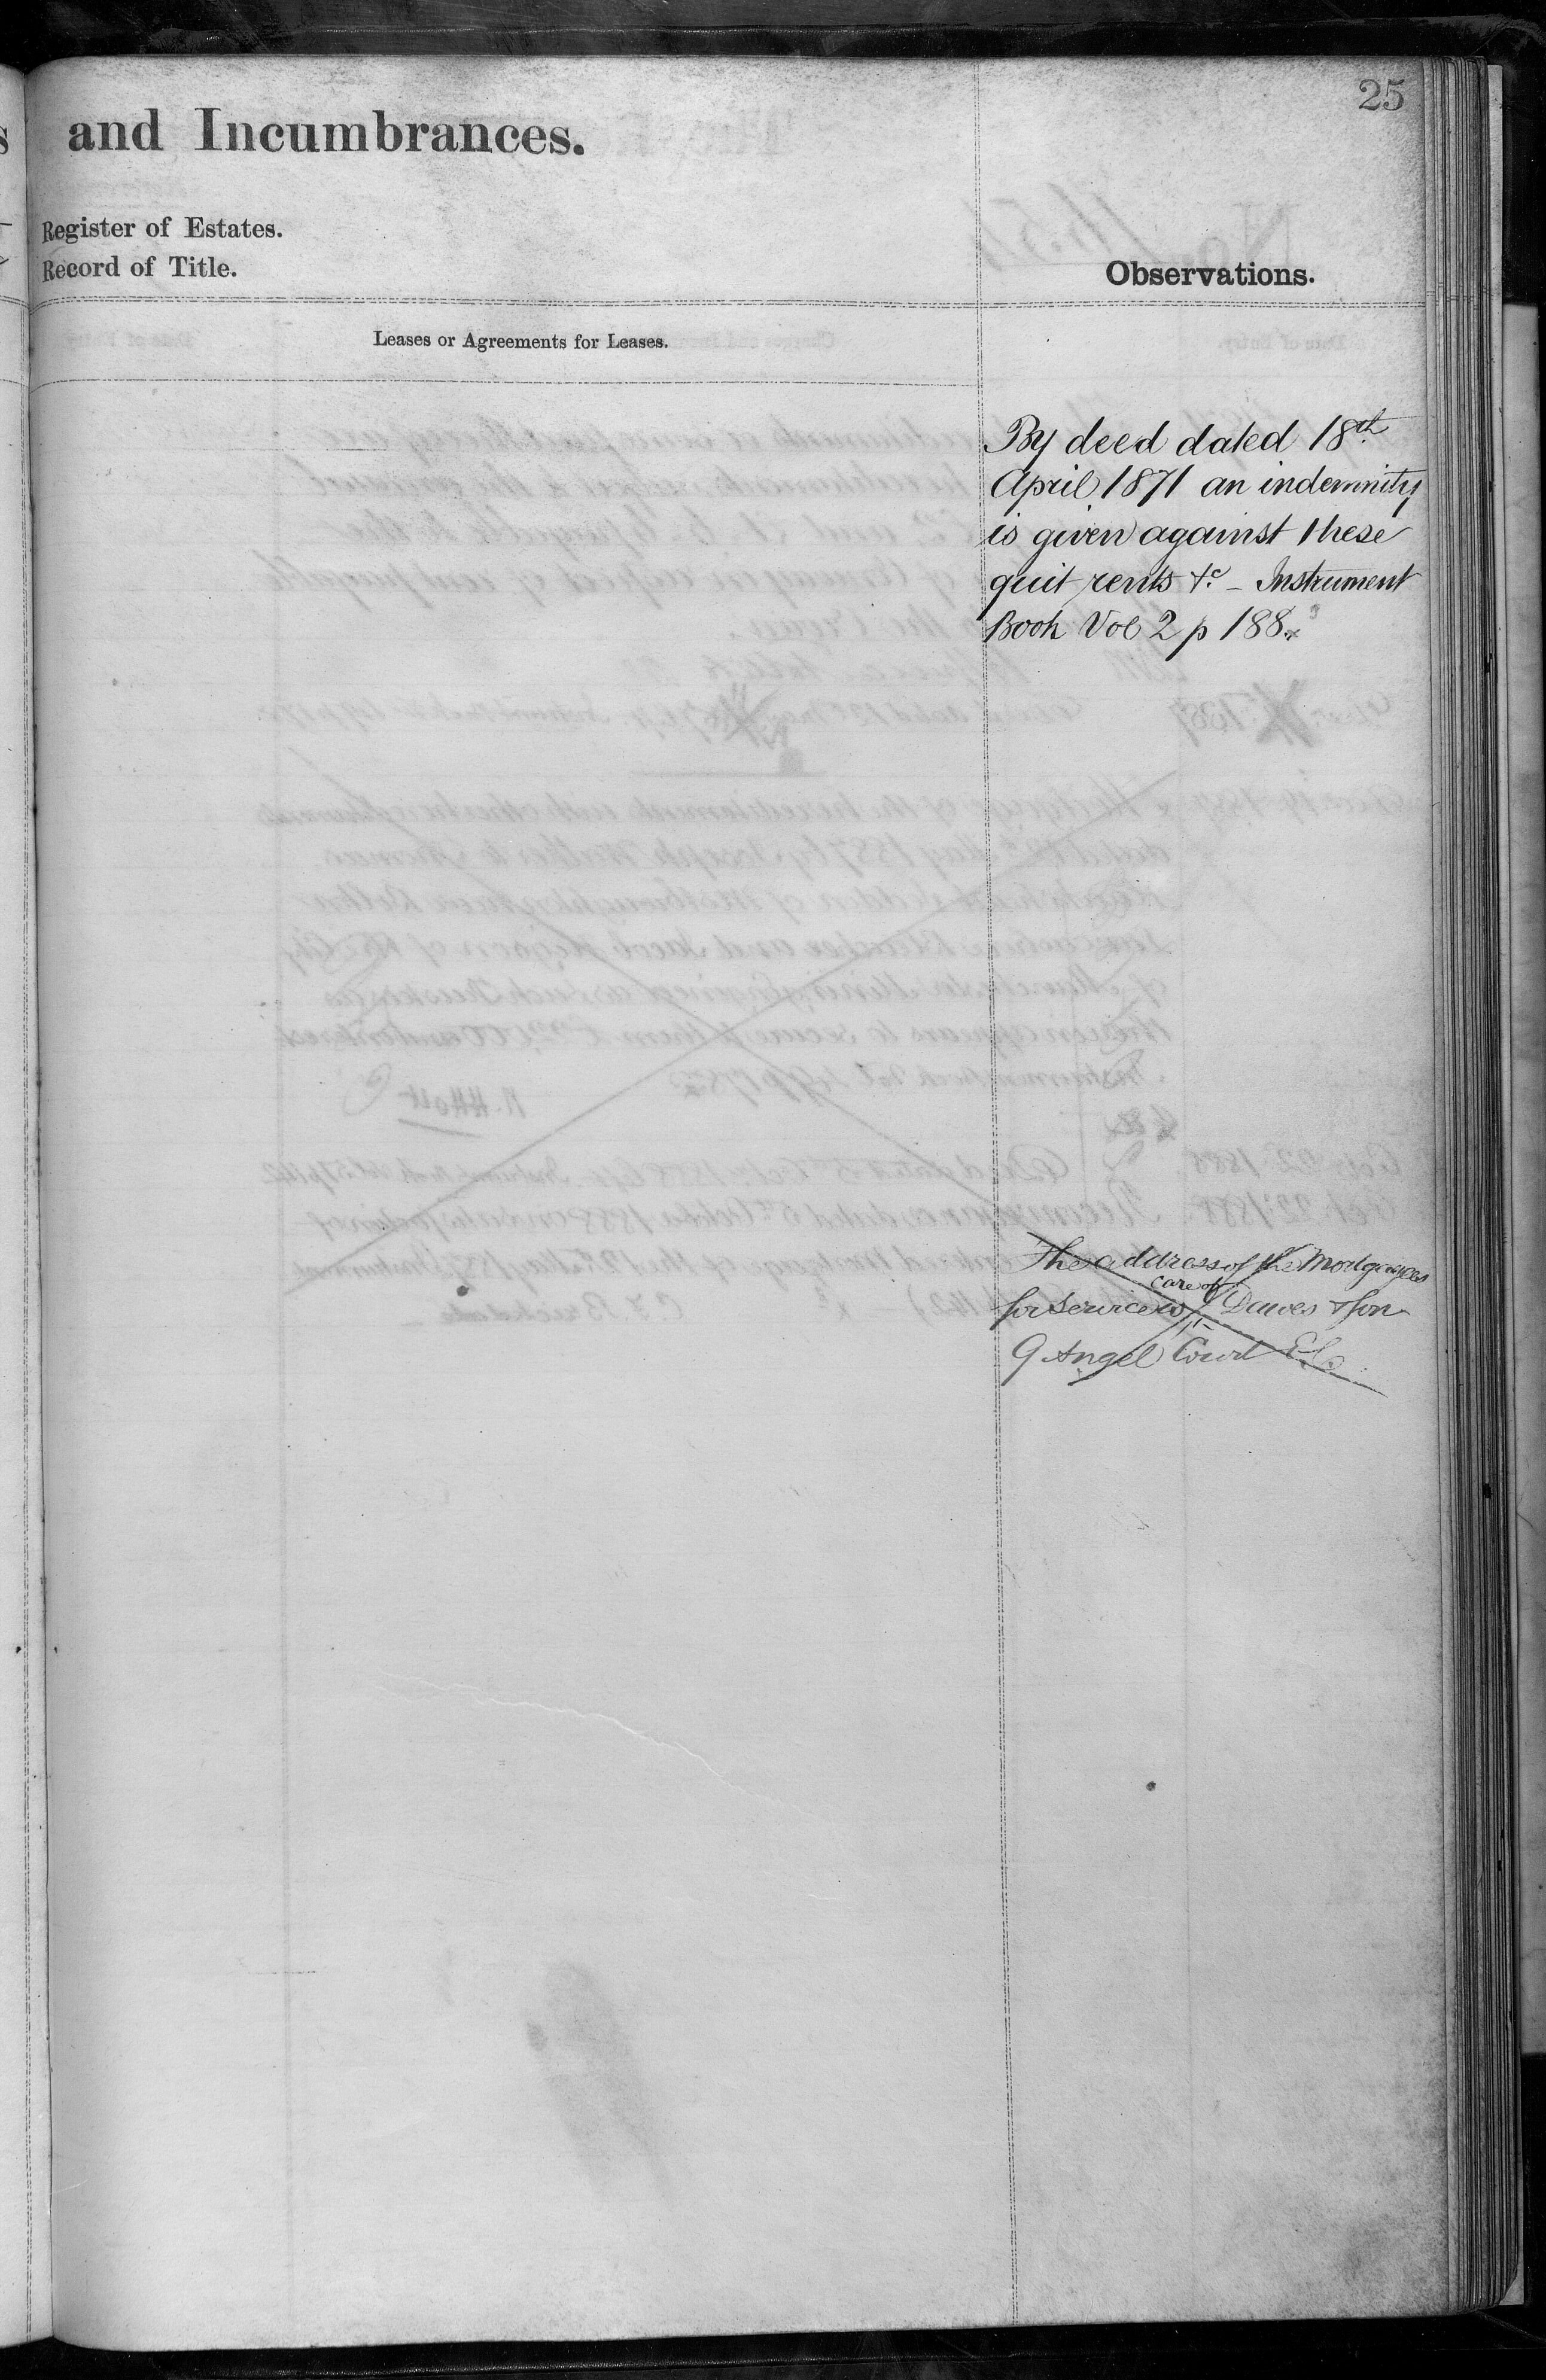 25
and Incumbrances.
Register of Estates.
Record of Title.
Observations.
Leases or Agreements for Leases.
By deed dated 18th
April 1871 an indemnity
is given against these
quit rents &c. - Instrument
Book Vol 2 p 188.
The address of the Mortgagees
care of
for service is Dawes & Son
9 Angel Court E.C.